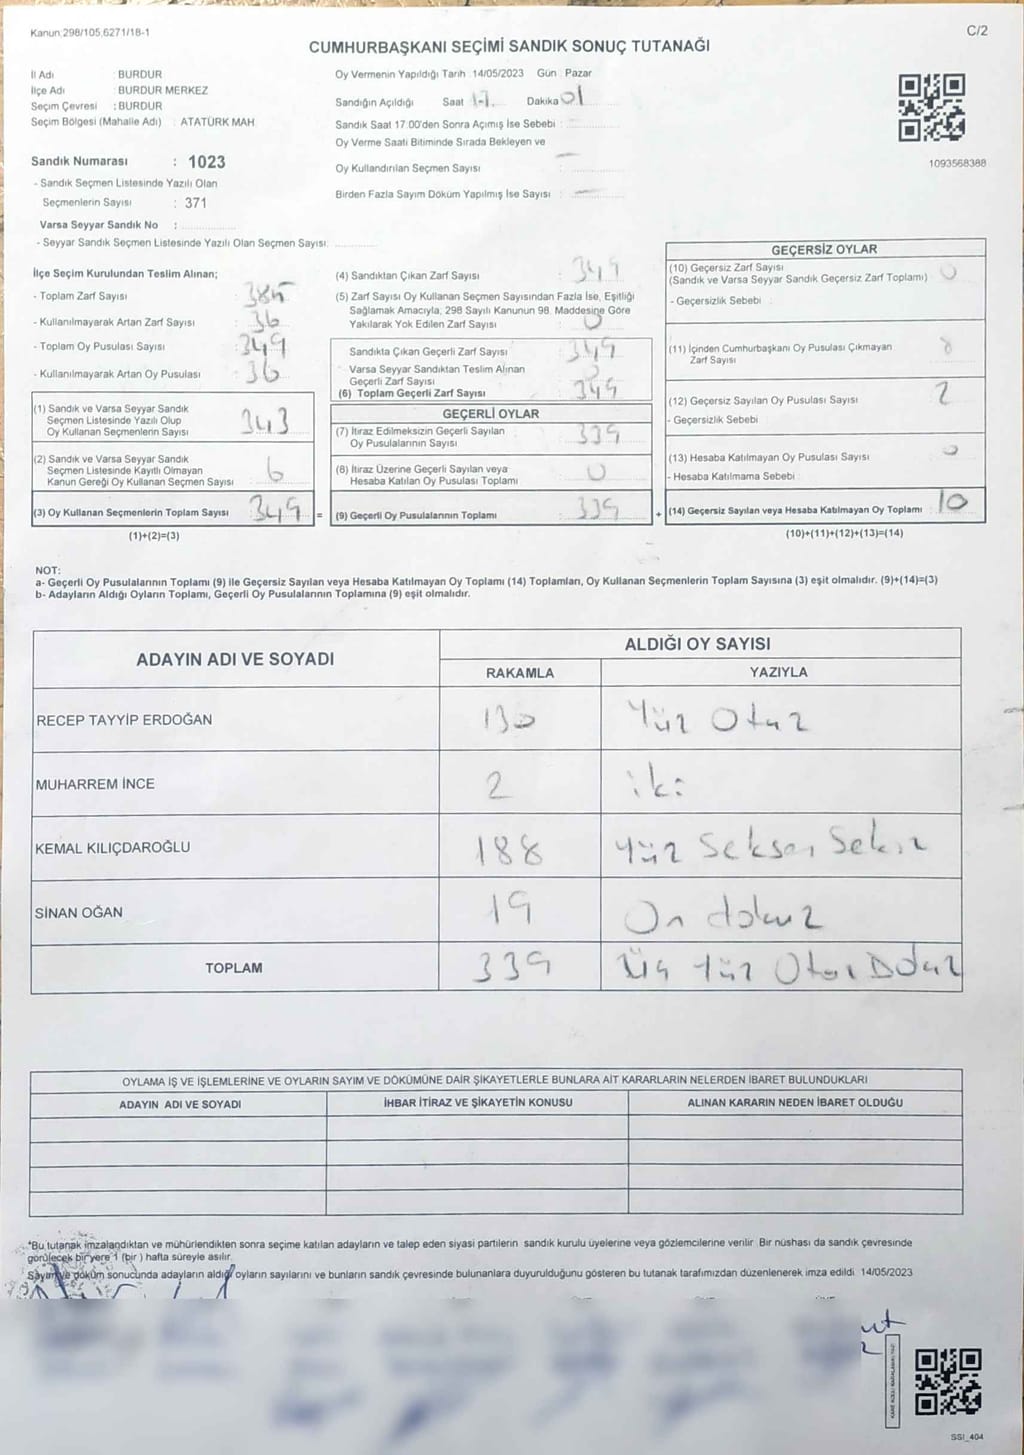 Kanun,298/105,6271/18-1
C/2
CUMHURBAŞKANI SEÇİMİ SANDIK SONUÇ TUTANAĞI
İl Adı : BURDUR
İlçe Adı : BURDUR MERKEZ
Seçim Çevresi : BURDUR
Seçim Bölgesi (Mahalle Adı) : ATATÜRK MAH
Sandık Numarası : 1023
- Sandık Seçmen Listesinde Yazılı Olan
Seçmenlerin Sayısı : 371
Varsa Seyyar Sandık No :
- Seyyar Sandık Seçmen Listesinde Yazılı Olan Seçmen Sayısı:
Oy Vermenin Yapıldığı Tarih :14/05/2023 Gün : Pazar
Sandığın Açıldığı Saat 17 Dakika 01
Sandık Saat 17.00'den Sonra Açımış İse Sebebi :
Oy Verme Saati Bitiminde Sırada Bekleyen ve
Oy Kullandırılan Seçmen Sayısı : —
Birden Fazla Sayım Döküm Yapılmış İse Sayısı : —
1093568388
İlçe Seçim Kurulundan Teslim Alınan;
- Toplam Zarf Sayısı : 385
- Kullanılmayarak Artan Zarf Sayısı : 36
- Toplam Oy Pusulası Sayısı : 349
- Kullanılmayarak Artan Oy Pusulası : 36
(1) Sandık ve Varsa Seyyar Sandık
Seçmen Listesinde Yazılı Olup
Oy Kullanan Seçmenlerin Sayısı : 343
(2) Sandık ve Varsa Seyyar Sandık
Seçmen Listesinde Kayıtlı Olmayan
Kanun Gereği Oy Kullanan Seçmen Sayısı : 6
(3) Oy Kullanan Seçmenlerin Toplam Sayısı : 349 =
(1)+(2)=(3)
(4) Sandıktan Çıkan Zarf Sayısı : 349
(5) Zarf Sayısı Oy Kullanan Seçmen Sayısından Fazla İse, Eşitliği
Sağlamak Amacıyla, 298 Sayılı Kanunun 98. Maddesine Göre
Yakılarak Yok Edilen Zarf Sayısı : 0
Sandıkta Çıkan Geçerli Zarf Sayısı : 349
Varsa Seyyar Sandıktan Teslim Alınan
Geçerli Zarf Sayısı : 0
(6) Toplam Geçerli Zarf Sayısı : 349
GEÇERLİ OYLAR
(7) İtiraz Edilmeksizin Geçerli Sayılan
Oy Pusulalarının Sayısı : 339
(8) İtiraz Üzerine Geçerli Sayılan veya
Hesaba Katılan Oy Pusulası Toplamı : 0
(9) Geçerli Oy Pusulalarının Toplamı : 339 +
GEÇERSİZ OYLAR
(10) Geçersiz Zarf Sayısı
(Sandık ve Varsa Seyyar Sandık Geçersiz Zarf Toplamı) : 0
- Geçersizlik Sebebi :
(11) İçinden Cumhurbaşkanı Oy Pusulası Çıkmayan
Zarf Sayısı : 8
(12) Geçersiz Sayılan Oy Pusulası Sayısı : 2
- Geçersizlik Sebebi :
(13) Hesaba Katılmayan Oy Pusulası Sayısı : 0
- Hesaba Katılmama Sebebi :
(14) Geçersiz Sayılan veya Hesaba Katılmayan Oy Toplamı : 10
(10)+(11)+(12)+(13)=(14)
NOT:
a- Geçerli Oy Pusulalarının Toplamı (9) ile Geçersiz Sayılan veya Hesaba Katılmayan Oy Toplamı (14) Toplamları, Oy Kullanan Seçmenlerin Toplam Sayısına (3) eşit olmalıdır. (9)+(14)=(3)
b- Adayların Aldığı Oyların Toplamı, Geçerli Oy Pusulalarının Toplamına (9) eşit olmalıdır.
ADAYIN ADI VE SOYADI
ALDIĞI OY SAYISI
RAKAMLA YAZIYLA
RECEP TAYYİP ERDOĞAN 130 Yüz Otuz
MUHARREM İNCE 2 iki
KEMAL KILIÇDAROĞLU 188 Yüz Seksen Sekiz
SİNAN OĞAN 19 On dokuz
TOPLAM 339 Üç Yüz Otuz Dokuz
OYLAMA İŞ VE İŞLEMLERİNE VE OYLARIN SAYIM VE DÖKÜMÜNE DAİR ŞİKAYETLERLE BUNLARA AİT KARARLARIN NELERDEN İBARET BULUNDUKLARI
ADAYIN ADI VE SOYADI İHBAR İTİRAZ VE ŞİKAYETİN KONUSU ALINAN KARARIN NEDEN İBARET OLDUĞU
*Bu tutanak imzalandıktan ve mühürlendikten sonra seçime katılan adayların ve talep eden siyasi partilerin sandık kurulu üyelerine veya gözlemcilerine verilir. Bir nüshası da sandık çevresinde
görülecek bir yere 1 (bir ) hafta süreyle asılır.
Sayım ve döküm sonucunda adayların aldığı oyların sayılarını ve bunların sandık çevresinde bulunanlara duyurulduğunu gösteren bu tutanak tarafımızdan düzenlenerek imza edildi. 14/05/2023
SSI_404